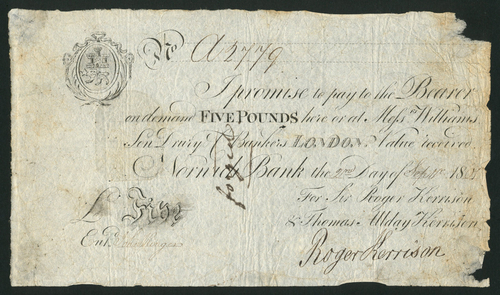 No A2779
I promise to pay to the Bearer
on demand FIVE POUNDS here or at Messrs Williams,
Son, Drury Bankers LONDON. Value received
Norwich Bank the 2nd Day of 18
For Sir Roger Kerrison
& Thomas Allday Kerrison
£ Five
Entd
Roger Kerrison
forged